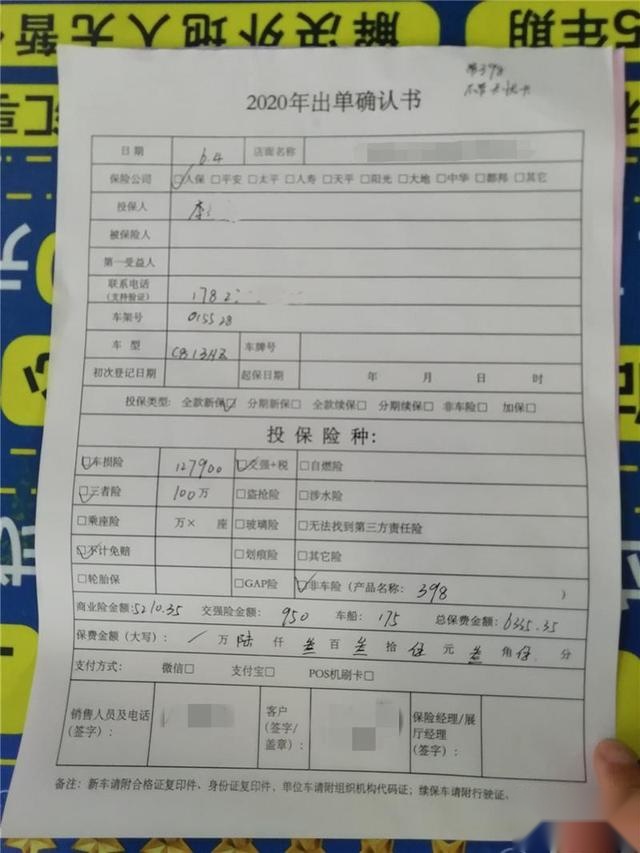 解决外地人无暂
5年期
第398
2020年出单确认书
日期 6.4 店面名称
保险公司 ☑人保 □平安 □太平 □人寿 □天平 □阳光 □大地 □中华 □都邦 □其它
投保人 李
被保险人
第一受益人
联系电话 178
(支持验证)
车架号 015528
车型 CB13HZ 车牌号
初次登记日期 起保日期 年 月 日 时
投保类型: 全款新保☑ 分期新保□ 全款续保□ 分期续保□ 非车险□ 加保□
投保险种:
☑车损险 127900 ☑交强+税 □自燃险
☑三者险 100万 □盗抢险 □涉水险
□乘座险 万× 座 □玻璃险 □无法找到第三方责任险
☑不计免赔 □划痕险 □其它险
□轮胎保 □GAP险 ☑非车险(产品名称: 398 )
商业险金额:5210.35 交强险金额: 950 车船: 175 总保费金额:6335.35
保费金额(大写): / 万 陆 仟 叁 百 叁 拾 伍 元 叁 角 伍 分
支付方式: 微信□ 支付宝□ POS机刷卡□
销售人员及电话 客户 保险经理/展
(签字): (签字/ 厅经理
盖章): (签字):
备注: 新车请附合格证复印件、身份证复印件, 单位车请附组织机构代码证; 续保车请附行驶证。